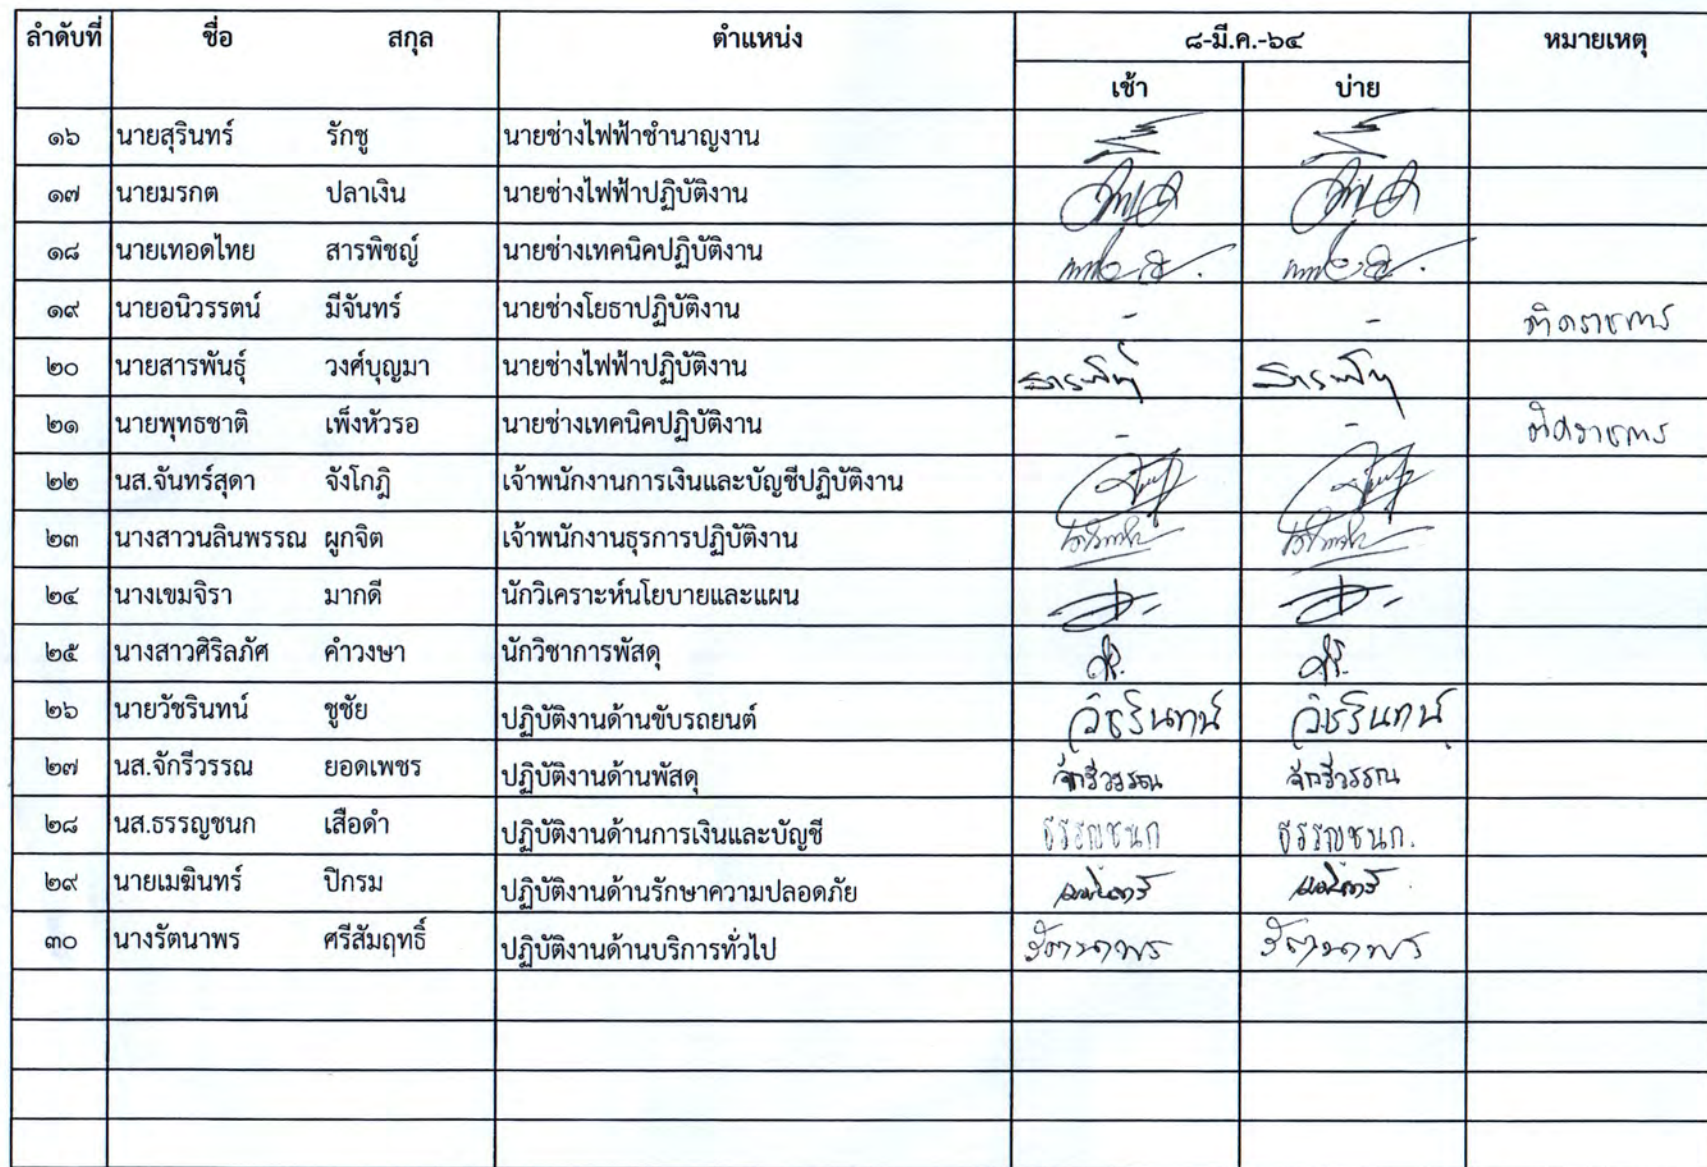 ลำดับที่ ชื่อ สกุล ตำแหน่ง ๘-มี.ค.-๖๔ หมายเหตุ
เช้า บ่าย
๑๖ นายสุรินทร์ รักชู นายช่างไฟฟ้าชำนาญงาน
๑๗ นายมรกต ปลาเงิน นายช่างไฟฟ้าปฏิบัติงาน
๑๘ นายเทอดไทย สารพิชญ์ นายช่างเทคนิคปฏิบัติงาน
๑๙ นายอนิวรรตน์ มีจันทร์ นายช่างโยธาปฏิบัติงาน - - ติดราชการ
๒๐ นายสารพันธุ์ วงศ์บุญมา นายช่างไฟฟ้าปฏิบัติงาน สารพันธุ์ สารพันธุ์
๒๑ นายพุทธชาติ เพ็งหัวรอ นายช่างเทคนิคปฏิบัติงาน - - ติดราชการ
๒๒ นส.จันทร์สุดา จังโกฎิ เจ้าพนักงานการเงินและบัญชีปฏิบัติงาน
๒๓ นางสาวนลินพรรณ ผูกจิต เจ้าพนักงานธุรการปฏิบัติงาน
๒๔ นางเขมจิรา มากดี นักวิเคราะห์นโยบายและแผน
๒๕ นางสาวศิริลภัศ คำวงษา นักวิชาการพัสดุ
๒๖ นายวัชรินทน์ ชูชัย ปฏิบัติงานด้านขับรถยนต์ วัชรินทน์ วัชรินทน์
๒๗ นส.จักรีวรรณ ยอดเพชร ปฏิบัติงานด้านพัสดุ จักรีวรรณ จักรีวรรณ
๒๘ นส.ธรรญชนก เสือดำ ปฏิบัติงานด้านการเงินและบัญชี ธรรญชนก ธรรญชนก.
๒๙ นายเมฆินทร์ ปิกรม ปฏิบัติงานด้านรักษาความปลอดภัย เมฆินทร์ เมฆินทร์
๓๐ นางรัตนาพร ศรีสัมฤทธิ์ ปฏิบัติงานด้านบริการทั่วไป รัตนาพร รัตนาพร